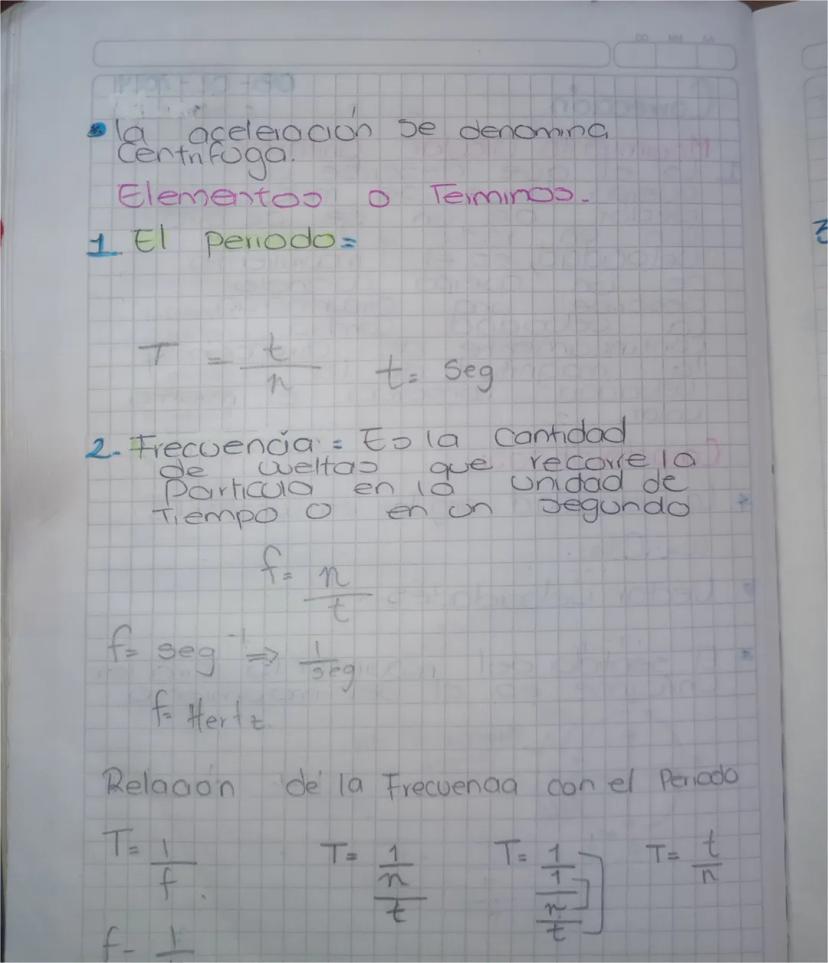 • la aceleración se denomina
centrifuga.
Elementos o Terminos.
1 El periodo=
T = t/n t= seg
2. Frecuencia = Es la cantidad
de vueltas que recorre la
particula en la unidad de
Tiempo o en un segundo
f= n/t
f= seg⁻¹ ⇒ 1/seg
f= Hertz
Relación de la Frecuencia con el Periodo
T= 1/f. T= 1/n/t T= 1/1/n/t T= t/n
f= 1